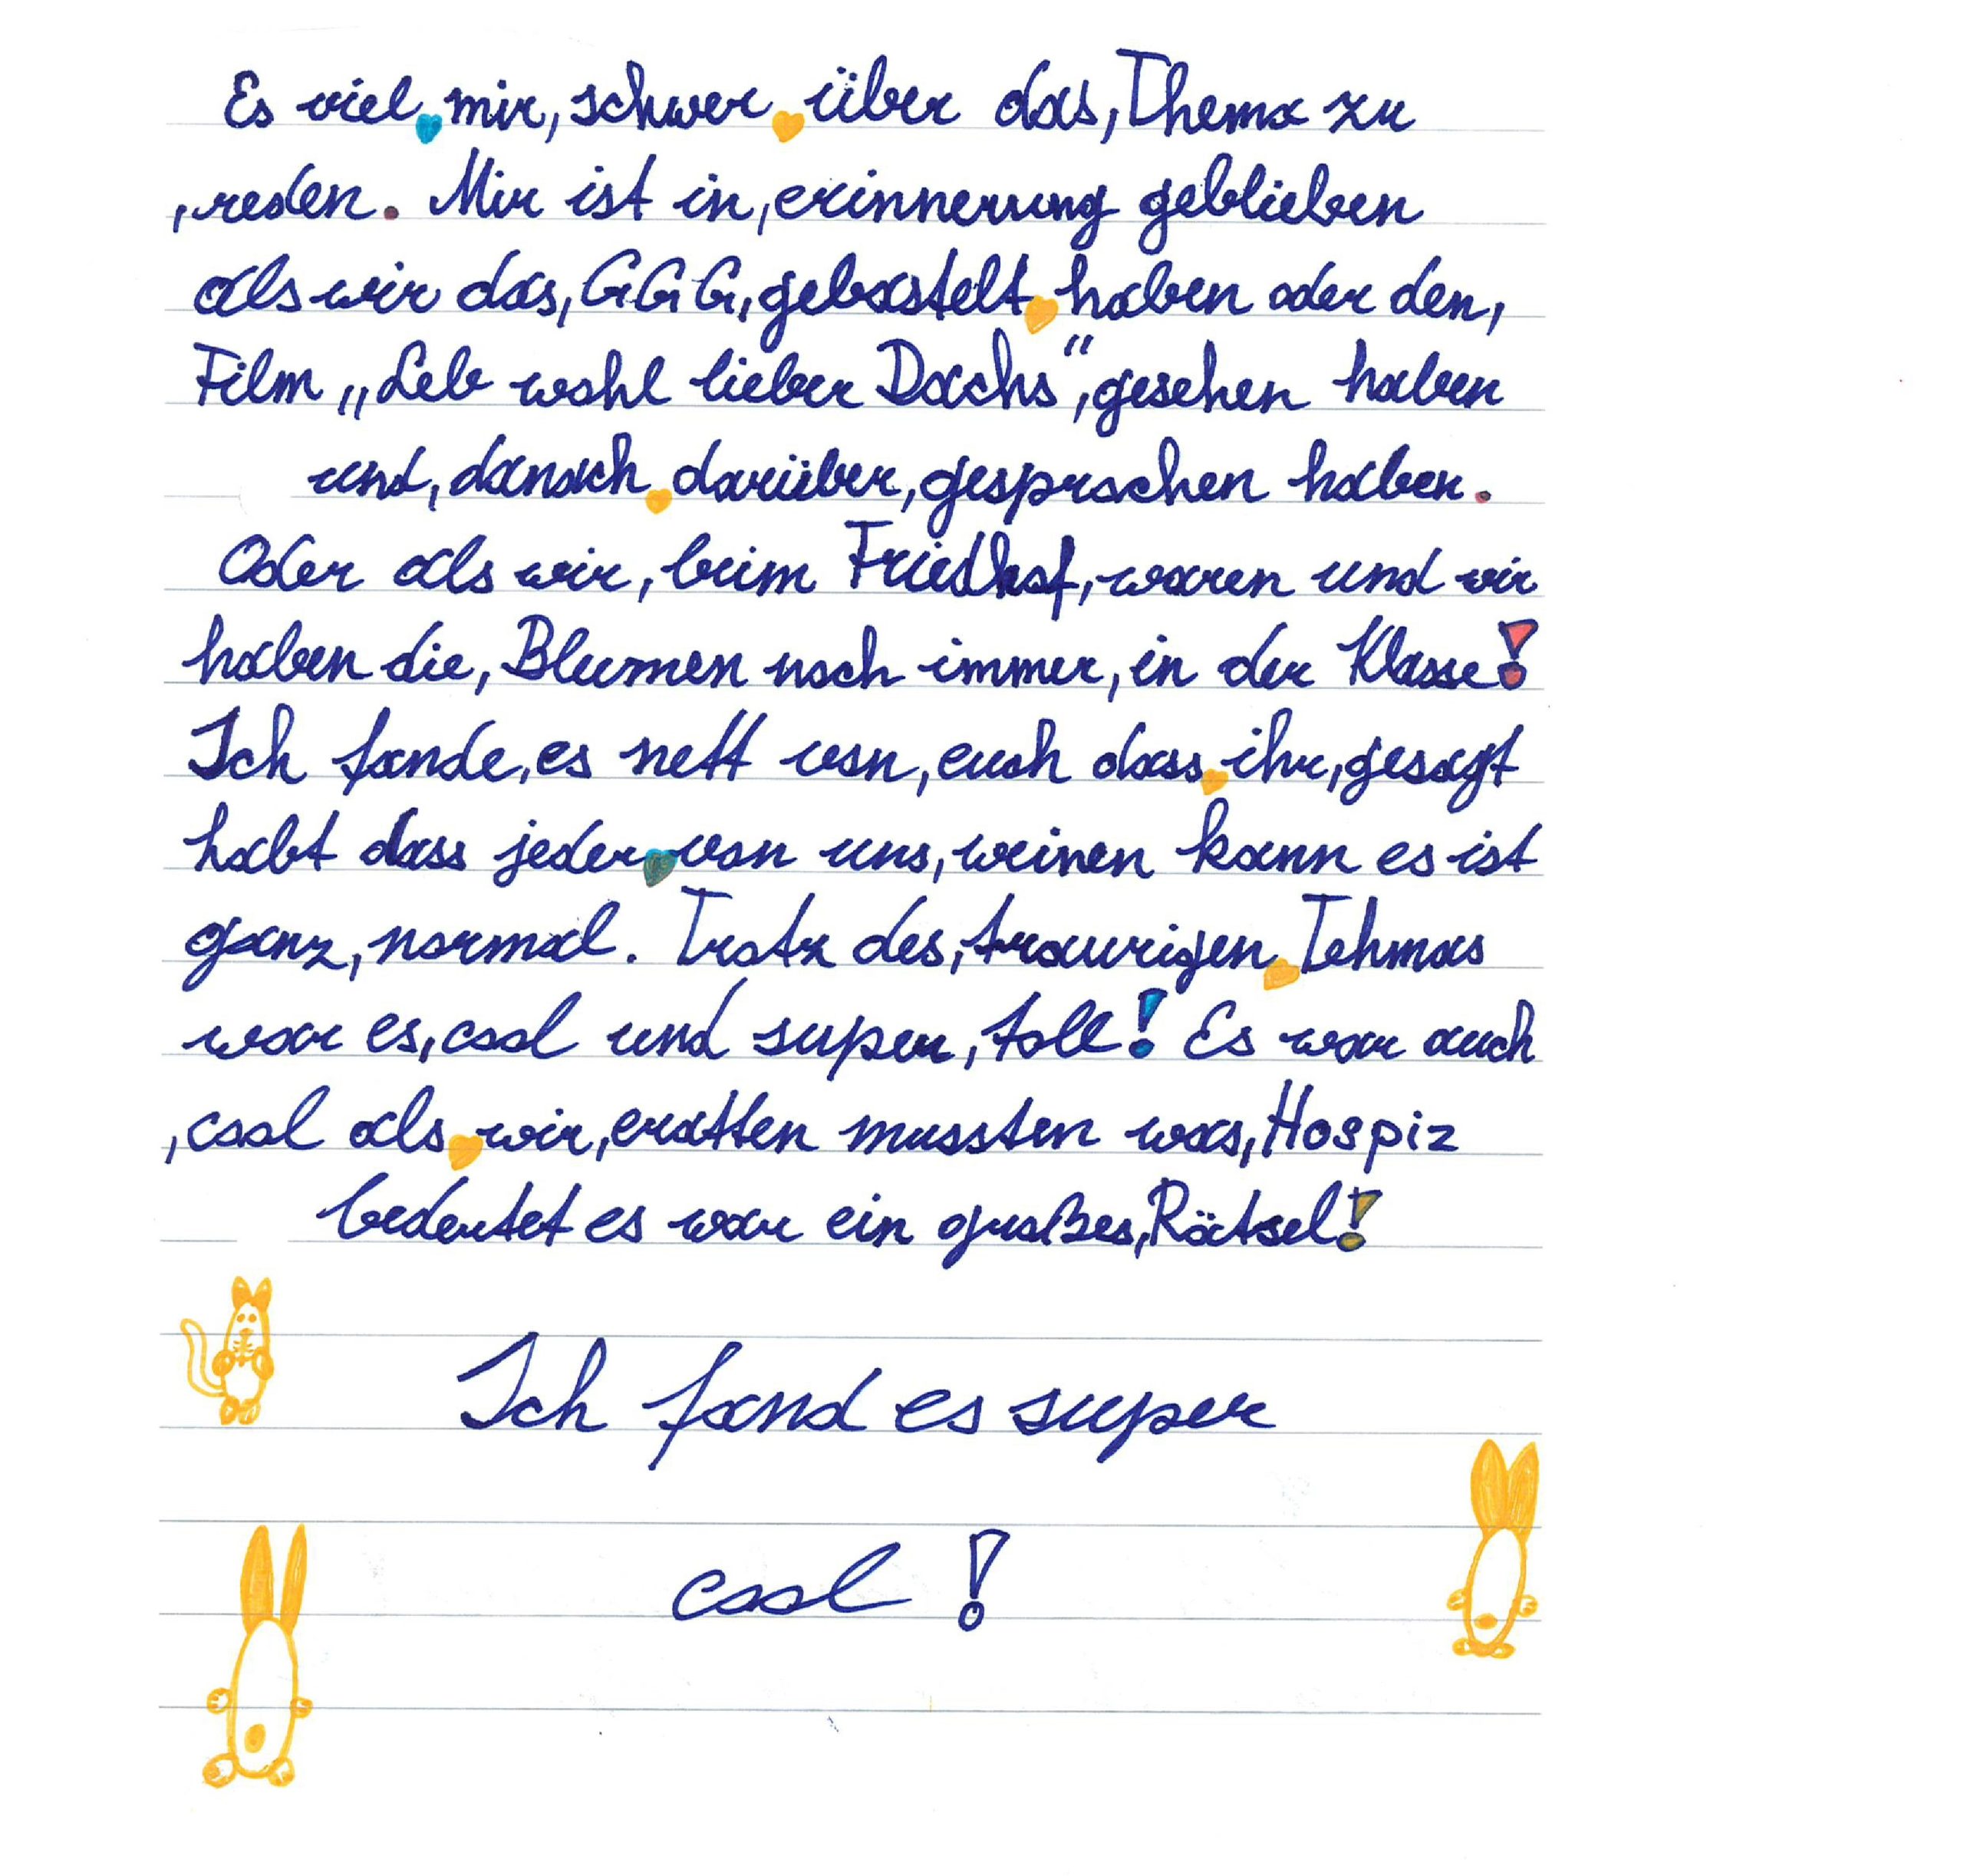 Es viel mir, schwer über das, Thema zu
, reden. Mir ist in, erinnerung geblieben
als wir das, GGG, gebastelt haben oder den,
Film „Leb wohl lieber Dachs“, gesehen haben
und, danach darüber, gesprochen haben.
Oder als wir, beim Friedhof, waren und wir
haben die, Blumen noch immer, in der Klasse!
Ich fande, es nett von, euch dass ihr, gesagt
habt dass jeder von uns, weinen kann es ist
ganz, normal. Trotz des, traurigen Tehmas
war es, cool und super, toll! Es war auch
, cool als wir, eratten mussten was, Hospiz
bedeutet es war ein großes, Rätsel!
Ich fand es super
cool!